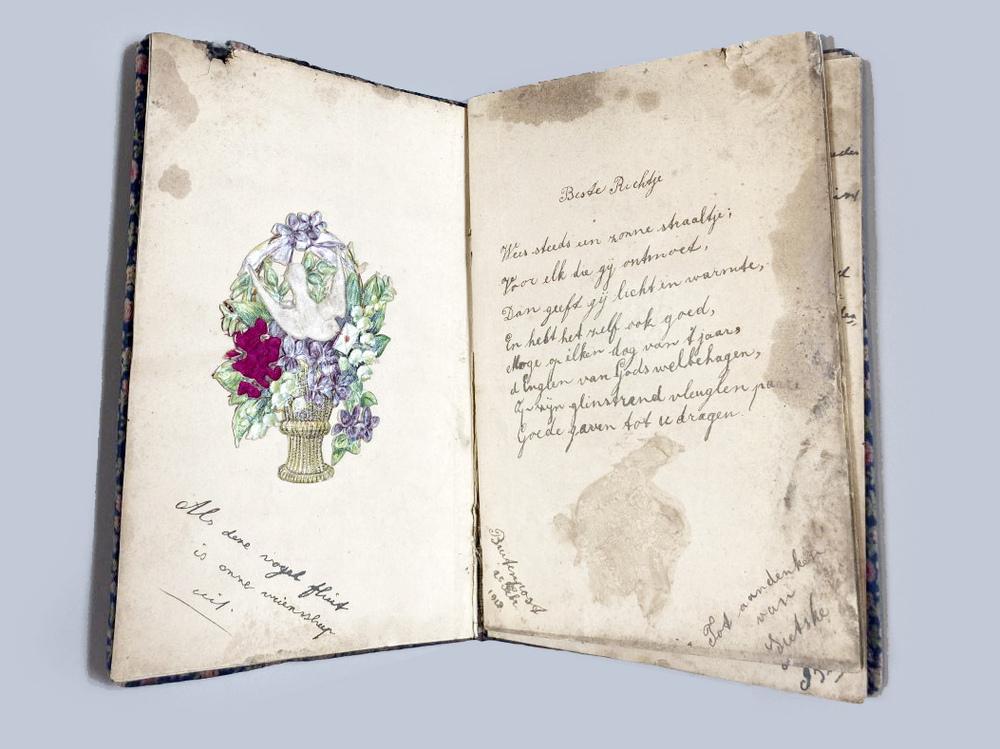 Als deze vogel fluit
is onze vriendschap
uit.
Beste Richtje
Wees steeds een zonne straaltje;
Voor elk die gij ontmoet,
Dan geeft gij licht en warmte,
En hebt het zelf ook goed,
Moge op elken dag van 't jaar
d'Englen van Gods welbehagen,
Op zijn glinstrend vleuglen paar
Goede gaven tot u dragen.
Buitenpost
Tot aandenken
van
Sietske